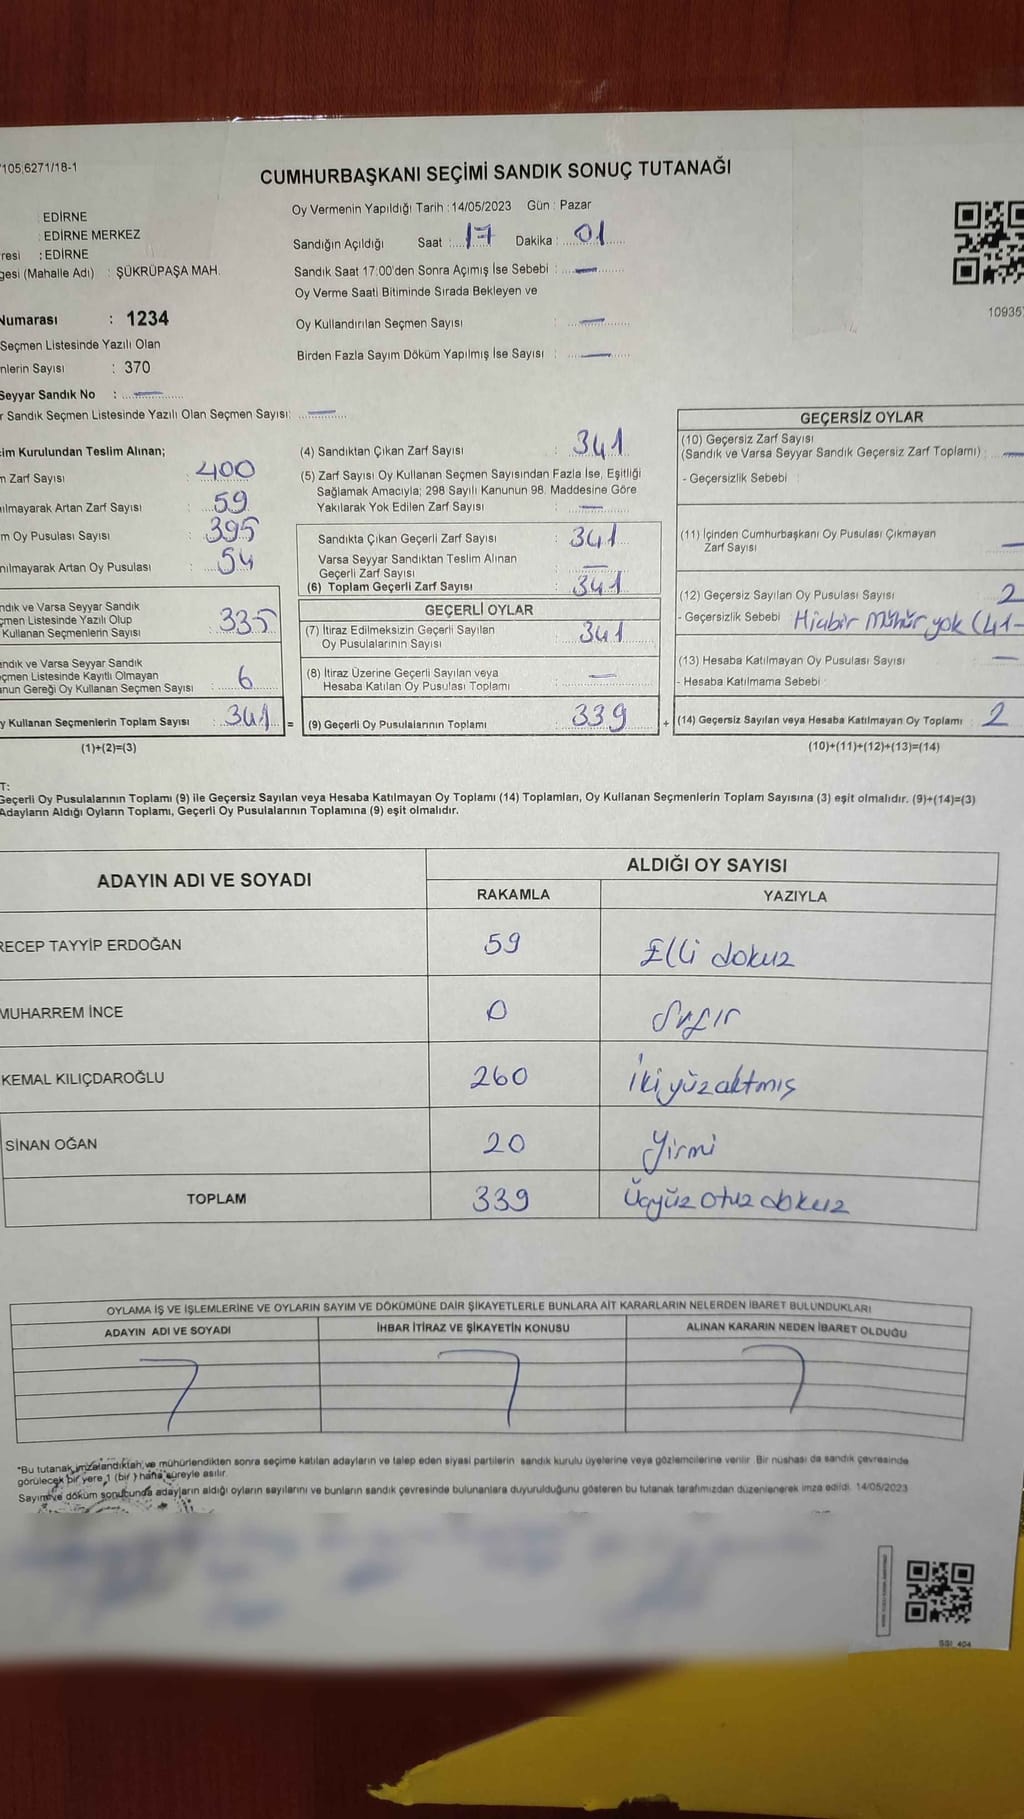 105,6271/18-1
CUMHURBAŞKANI SEÇİMİ SANDIK SONUÇ TUTANAĞI
EDİRNE
EDİRNE MERKEZ
resi : EDİRNE
gesi (Mahalle Adı) : ŞÜKRÜPAŞA MAH.
Oy Vermenin Yapıldığı Tarih : 14/05/2023 Gün : Pazar
Sandığın Açıldığı Saat : 17 Dakika : 01
Sandık Saat 17:00'den Sonra Açımış İse Sebebi : —
Oy Verme Saati Bitiminde Sırada Bekleyen ve
Oy Kullandırılan Seçmen Sayısı : —
Birden Fazla Sayım Döküm Yapılmış İse Sayısı : —
10935
Numarası : 1234
Seçmen Listesinde Yazılı Olan
nlerin Sayısı : 370
Seyyar Sandık No : —
r Sandık Seçmen Listesinde Yazılı Olan Seçmen Sayısı: —
im Kurulundan Teslim Alınan;
n Zarf Sayısı : 400
ılmayarak Artan Zarf Sayısı : 59
m Oy Pusulası Sayısı : 395
nılmayarak Artan Oy Pusulası : 54
ndık ve Varsa Seyyar Sandık
çmen Listesinde Yazılı Olup
Kullanan Seçmenlerin Sayısı : 335
andık ve Varsa Seyyar Sandık
çmen Listesinde Kayıtlı Olmayan
nun Gereği Oy Kullanan Seçmen Sayısı : 6
y Kullanan Seçmenlerin Toplam Sayısı : 341 =
(1)+(2)=(3)
(4) Sandıktan Çıkan Zarf Sayısı : 341
(5) Zarf Sayısı Oy Kullanan Seçmen Sayısından Fazla İse, Eşitliği
Sağlamak Amacıyla; 298 Sayılı Kanunun 98. Maddesine Göre
Yakılarak Yok Edilen Zarf Sayısı : —
Sandıkta Çıkan Geçerli Zarf Sayısı : 341
Varsa Seyyar Sandıktan Teslim Alınan
Geçerli Zarf Sayısı : —
(6) Toplam Geçerli Zarf Sayısı : 341
GEÇERLİ OYLAR
(7) İtiraz Edilmeksizin Geçerli Sayılan
Oy Pusulalarının Sayısı : 341
(8) İtiraz Üzerine Geçerli Sayılan veya
Hesaba Katılan Oy Pusulası Toplamı : —
(9) Geçerli Oy Pusulalarının Toplamı : 339 +
GEÇERSİZ OYLAR
(10) Geçersiz Zarf Sayısı
(Sandık ve Varsa Seyyar Sandık Geçersiz Zarf Toplamı) : —
- Geçersizlik Sebebi :
(11) İçinden Cumhurbaşkanı Oy Pusulası Çıkmayan
Zarf Sayısı : —
(12) Geçersiz Sayılan Oy Pusulası Sayısı : 2
- Geçersizlik Sebebi Hiçbir Mühür yok (41-
(13) Hesaba Katılmayan Oy Pusulası Sayısı : —
- Hesaba Katılmama Sebebi :
(14) Geçersiz Sayılan veya Hesaba Katılmayan Oy Toplamı : 2
(10)+(11)+(12)+(13)=(14)
T:
Geçerli Oy Pusulalarının Toplamı (9) ile Geçersiz Sayılan veya Hesaba Katılmayan Oy Toplamı (14) Toplamları, Oy Kullanan Seçmenlerin Toplam Sayısına (3) eşit olmalıdır. (9)+(14)=(3)
Adayların Aldığı Oyların Toplamı, Geçerli Oy Pusulalarının Toplamına (9) eşit olmalıdır.
ADAYIN ADI VE SOYADI
ALDIĞI OY SAYISI
RAKAMLA YAZIYLA
RECEP TAYYİP ERDOĞAN 59 Elli dokuz
MUHARREM İNCE 0 Sıfır
KEMAL KILIÇDAROĞLU 260 İkiyüzaltmış
SİNAN OĞAN 20 Yirmi
TOPLAM 339 Üçyüz otuz dokuz
OYLAMA İŞ VE İŞLEMLERİNE VE OYLARIN SAYIM VE DÖKÜMÜNE DAİR ŞİKAYETLERLE BUNLARA AİT KARARLARIN NELERDEN İBARET BULUNDUKLARI
ADAYIN ADI VE SOYADI İHBAR İTİRAZ VE ŞİKAYETİN KONUSU ALINAN KARARIN NEDEN İBARET OLDUĞU
*Bu tutanak imzalandıktan ve mühürlendikten sonra seçime katılan adayların ve talep eden siyasi partilerin sandık kurulu üyelerine veya gözlemcilerine verilir. Bir nüshası da sandık çevresinde
görülecek bir yere 1 (bir) hafta süreyle asılır.
Sayım ve döküm sonucunda adayların aldığı oyların sayılarını ve bunların sandık çevresinde bulunanlara duyurulduğunu gösteren bu tutanak tarafımızdan düzenlenerek imza edildi. 14/05/2023
SSI_404